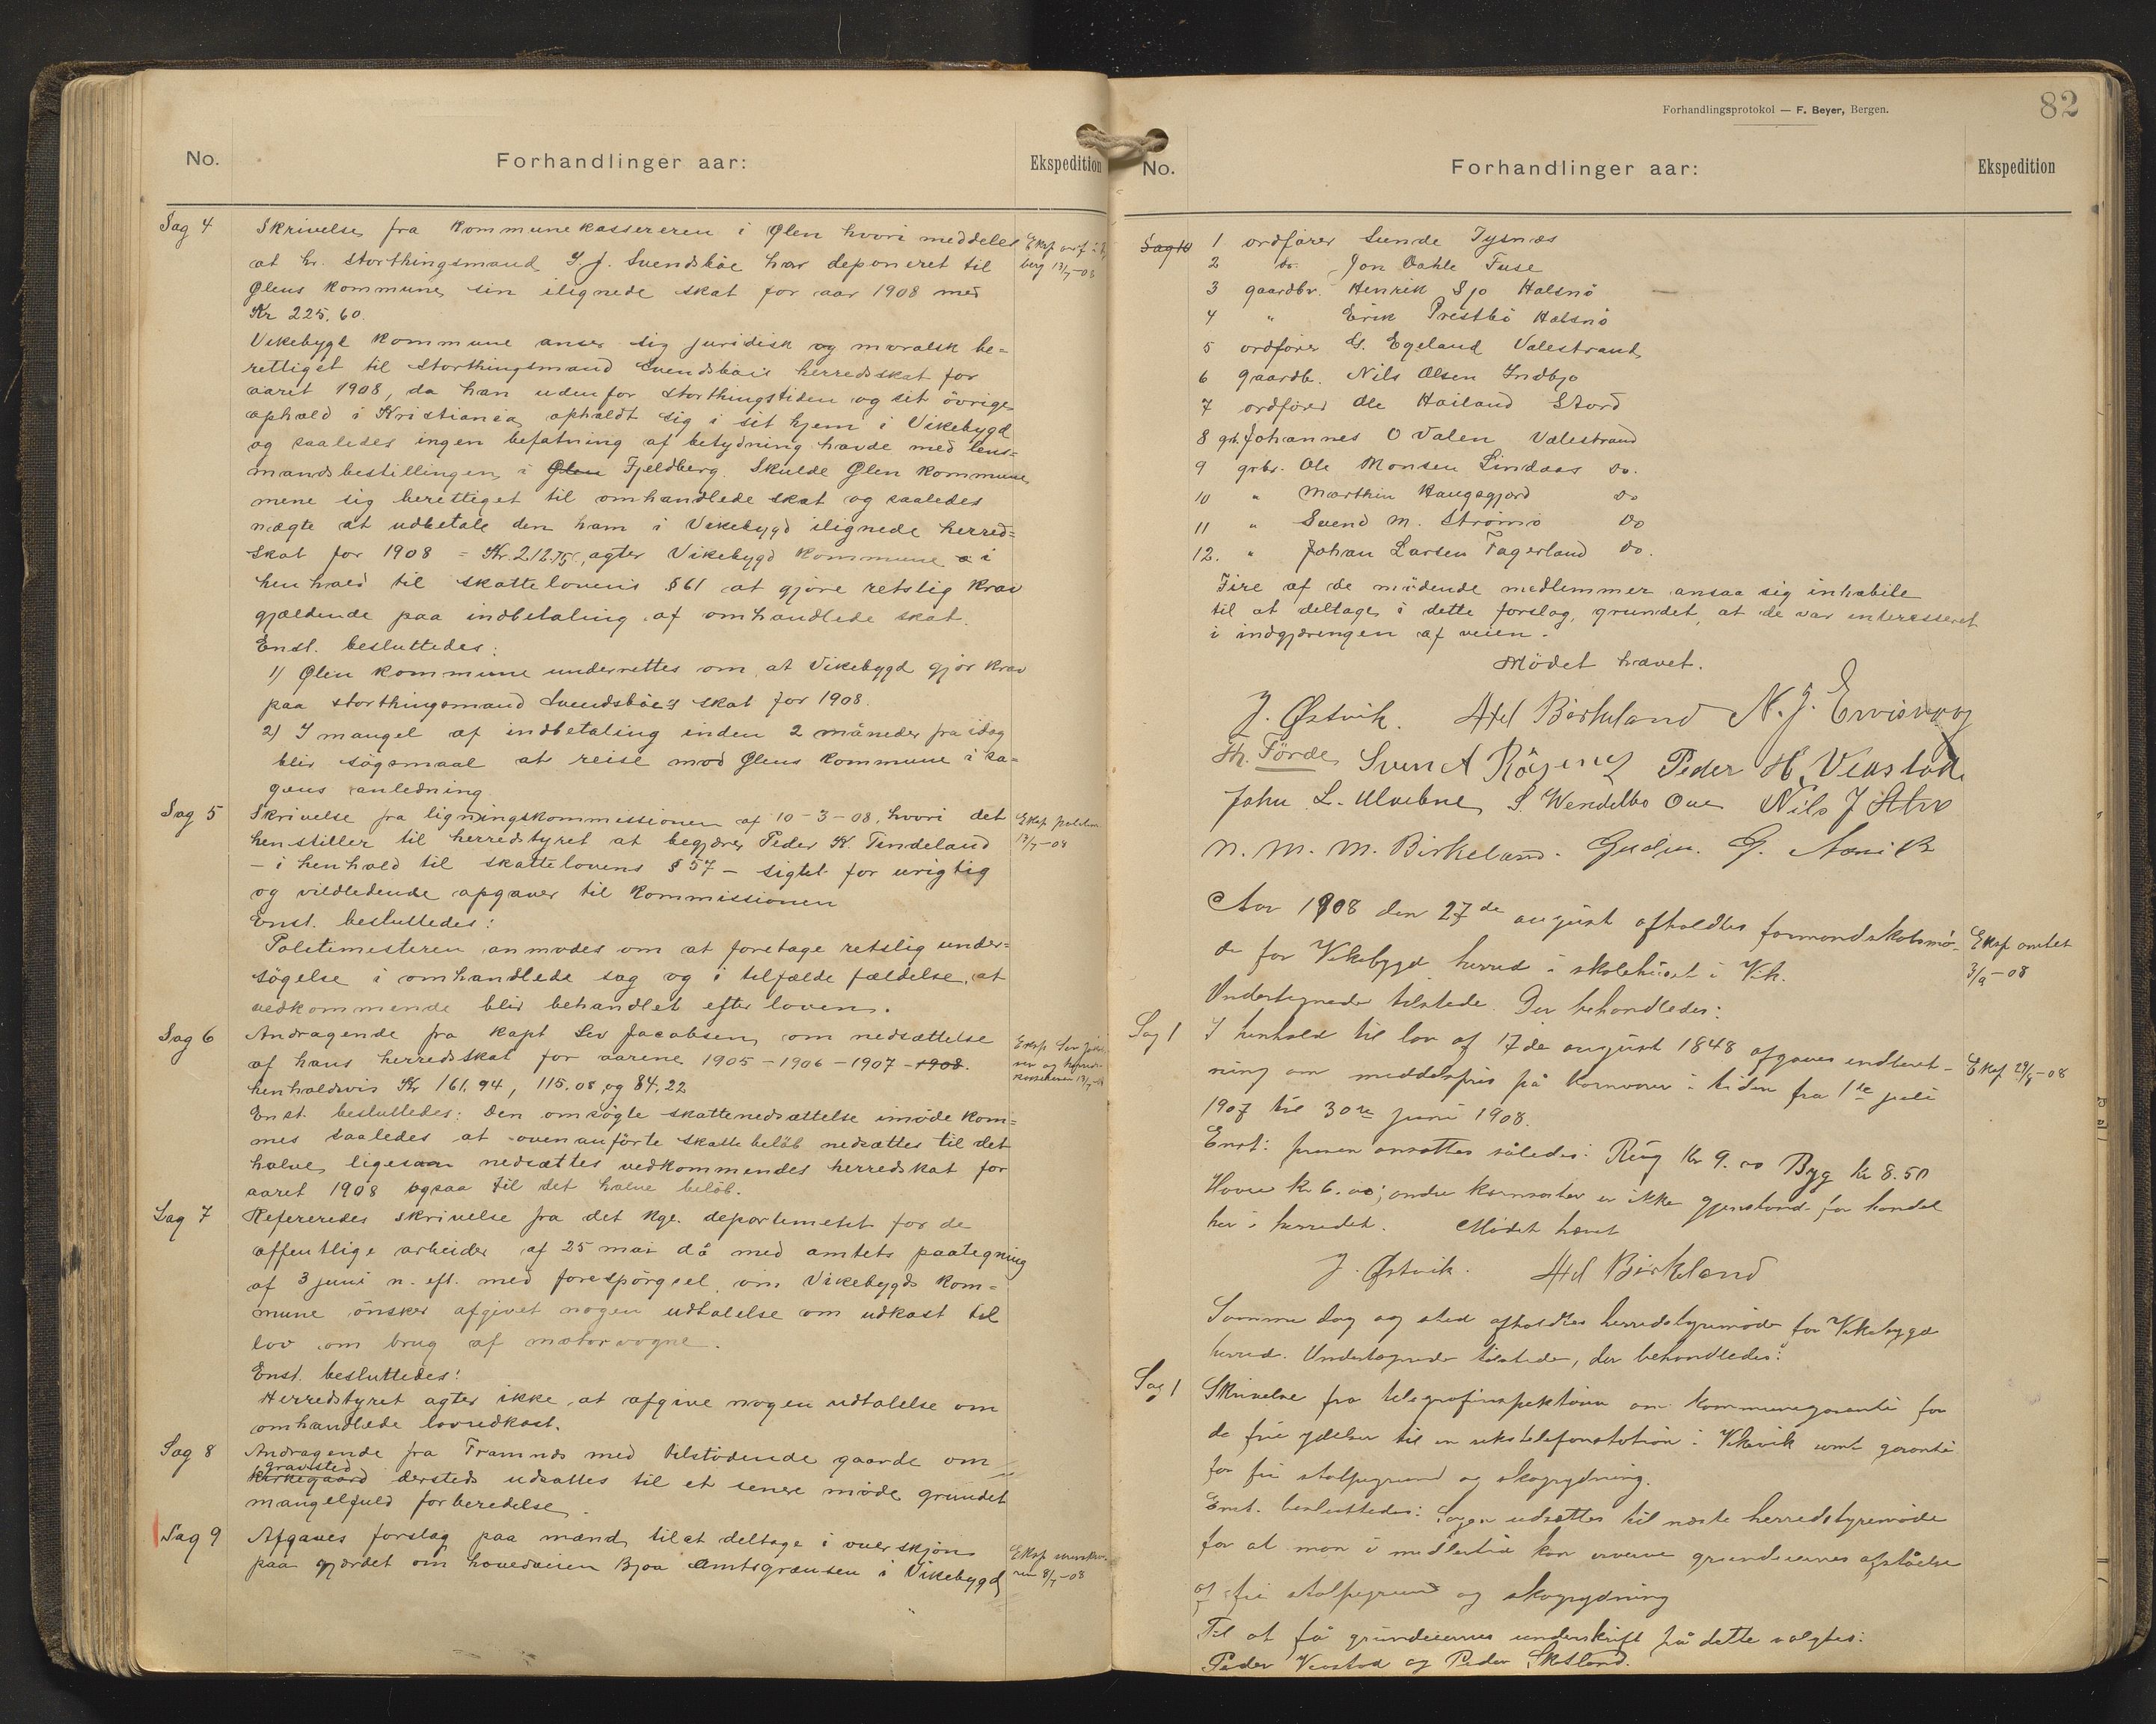 No.
Forhandlinger aar:
Ekspedition
Sag 4
Skrivelse fra kommunekassereren i Ølen hvori meddeles
at hr. storthingsmand J. Svendsböe har deponeret til
Ølens kommune sin ilignede skat for aar 1908 med
Kr 225.60.
Vikebygd kommune anser sig juridisk og moralsk be=
rettiget til storthingsmand Svendsböes herredsskat for
aaret 1908, da han udenfor storthingstiden og sit övrige
ophold i Kristiania opholdt sig i sit hjem i Vikebygd
og saaledes ingen befatning af betydning havde med lens=
mandsbestillingen i Ølen Fjeldberg. Skulde Ølen kommune
mene sig berettiget til omhandlede skat og saaledes
nægte at udbetale den ham i Vikebygd ilignede herred=
skat for 1908 = Kr. 212.75, agter Vikebygd kommune i
henhold til skattelovens § 61 at gjöre retslig krav
gjældende paa indbetaling af omhandlede skat.
Enst. besluttedes:
1) Ølen kommune underrettes om, at Vikebygd gjör krav
paa storthingsmand Svendsböes skat for 1908.
2) I mangel af indbetaling inden 2 måneder fra idag
blir sögsmaal at reise mod Ølens kommune i sa=
gens anledning
Sag 5
Skrivelse fra ligningskommissionen af 10-3-08, hvori det
henstiller til herredstyret at begjære Peder K. Tindeland
– i henhold til skattelovens § 57 – sigtet for urigtig
og vildledende opgaver til kommissionen
Enst. besluttedes:
Politimesteren anmodes om at foretage retslig under=
sögelse i omhandlede sag og i tilfælde fældelse, at
vedkommende blir behandlet efter loven.
Sag 6
Andragende fra kapt Sev Jacobsen om nedsættelse
af hans herredsskat for aarene 1905 – 1906 – 1907 – 1908.
henholdsvis Kr 161.94, 115.08 og 84.22
Enst. besluttedes: Den omsögte skattenedsættelse imödekom=
mes saaledes at ovenanförte skattebelöb nedsættes til det
halve, ligesaa nedsættes vedkommendes herredskat for
aaret 1908 ogsaa til det halve belöb.
Sag 7
Refereredes skrivelse fra det kgl. departementet for de
offentlige arbeider af 25 mai då med amtets paategning
af 3 juni n. eft. med forespörgsel, om Vikebygds kom=
mune önsker afgivet nogen udtalelse om udkast til
lov om brug af motorvogne.
Enst. besluttedes:
Herredstyret agter ikke at afgive nogen udtalelse om
omhandlede lovudkast.
Sag 8
Andragende fra Framnæs med tilstödende gaarde om
gravsted
kirkegaard dersteds udsattes til et senere möde grundet
mangelfuld forberedelse.
Sag 9
Afgaves forslag paa mænd til at deltage i overskjön
paa gjærdet om hovedveien Bjoa – Amtsgrænsen i Vikebygd
Forhandlingsprotokol — F. Beyer, Bergen.
82
No.
Forhandlinger aar:
Ekspedition
Sag 10
1 ordförer Sunde Tysnæs
2 do. Jon Dahle Fuse
3 gaardbr. Henrik Sjo Halsnö
4 " Erik Prestbö Halsnö
5 ordförer G. Egeland Valestrand
6 gaardb. Nils Olsen Indbjo
7 ordförer Ole Hailand Stord
8 gb. Johannes O Valen Valestrand
9 grbr. Ole Monsen Lindaas do.
10 " Marthin Haugsgjerd do
11 " Svend M. Strömö Do
12. " Johan Larsen Fagerland Do.
Fire af de mödende medlemmer ansaa sig inhabile
til at deltage i dette forslag, grundet, at de var interesseret
i indgjæringen af veien.
Mödet hævet.
J. Østvik. Axel Birkeland N. J.
Th. Förde Svend Peder H. Veastad
John L. Ulvebne S. Wendelbo Nils J
N. M. M. Birkeland. Gudm. G.
Aar 1908 den 27de august afholdtes formandskabsmö-
de for Vikebygd herred i skolehuset i Vik.
Undertegnede tilstede. Der behandledes:
Eksp amtet
3/9-08
Sag 1
I henhold til lov af 17de august 1848 afgaves indberet-
ning om middelpris på kornvarer i tiden fra 1te juli
1907 til 30te juni 1908.
Eksp 29/8-08
Enst: prisen ansattes således: Rug Kr 9.00 Byg Kr 8.50
Havre kr 6.00; andre kornsorter er ikke gjenstand for handel
her i herredet. Mödet hævet
J. Østvik. Axel Birkeland
Samme dag og sted afholdtes herredstyremöde for Vikebygd
herred. Undertegnede tilstede, der behandledes:
Sag 1
Skrivelse fra telegrafinspektören om kommunegaranti for
de frie ydelser til en rikstelefonstation i Vikevik samt garanti
for fri stolpegrund og skogrydning.
Enst. besluttedes: Sagen udsættes til næste herredstyremöde
for at man i midlertid kan erverve grundeiernes afståelse
af fri stolpegrund og skogrydning
Til at få grundeiernes underskrift på dette valgtes:
Peder Veastad og Peder Sketland.